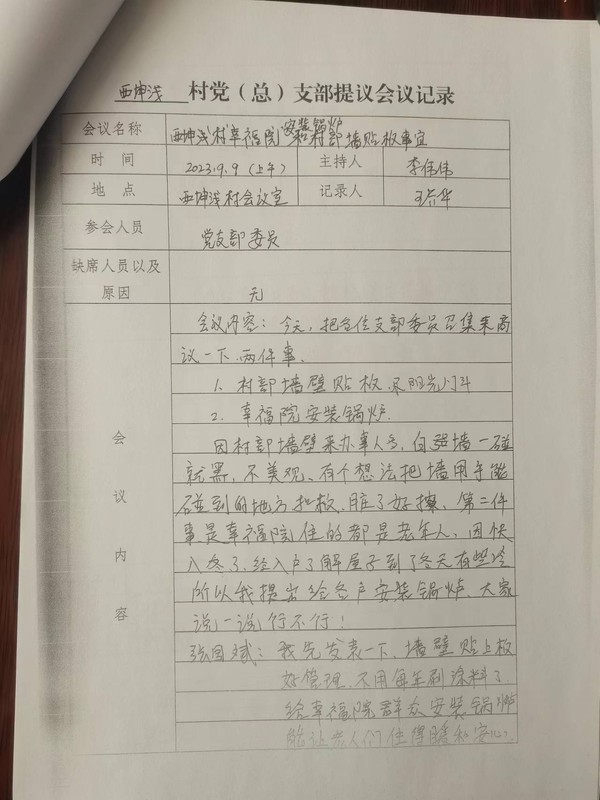 西坤浅 村党（总）支部提议会议记录
会议名称 西坤浅村幸福院安装锅炉和村部墙贴板事宜
时 间 2023.9.9（上午） 主持人 李伟伟
地 点 西坤浅村会议室 记录人
参会人员 党支部委员
缺席人员以及原因 无
会议内容
会议内容：今天，把各位支部委员召集来商
议一下两件事.
1. 村部墙壁贴板及阳光门斗
2. 幸福院安装锅炉.
因村部墙壁来办事人多，白强墙一碰
就黑，不美观、有个想法把墙用手能
碰到的地方扣板.脏了好擦、第二件
事是幸福院住的都是老年人，因快
入冬了.经入户了解屋子到了冬天有些冷
所以我提出给各户安装锅炉.大家
说一说行不行！
张国斌：我先发表一下.墙壁贴上板
好管理.不用每年刷涂料了.
给幸福院群众安装锅炉
能让老人们住得暖和安心.